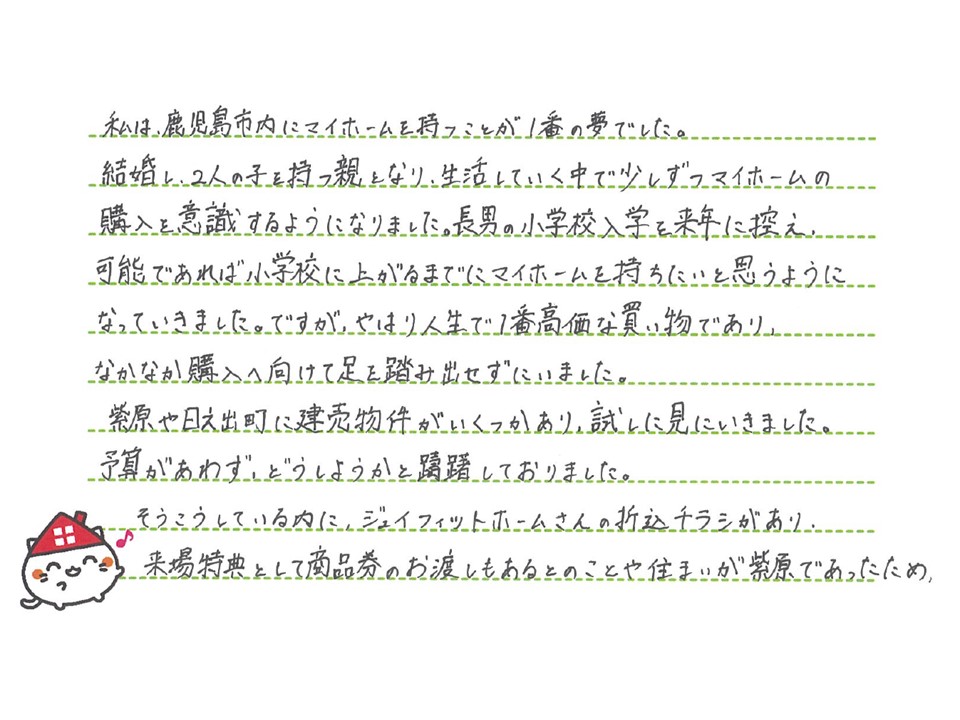 私は、鹿児島市内にマイホームを持つことが1番の夢でした。
結婚し、2人の子を持つ親となり、生活していく中で少しずつマイホームの
購入を意識するようになりました。長男の小学校入学を来年に控え、
可能であれば小学校に上がるまでにマイホームを持ちたいと思うように
なっていきました。ですが、やはり人生で1番高価な買い物であり、
なかなか購入へ向けて足を踏み出せずにいました。
紫原や日之出町に建売物件がいくつかあり、試しに見にいきました。
予算があわず、どうしようかと躊躇しておりました。
そうこうしている内に、ジェイフィットホームさんの折込チラシがあり、
来場特典として商品券のお渡しもあるとのことや住まいが紫原であったため、